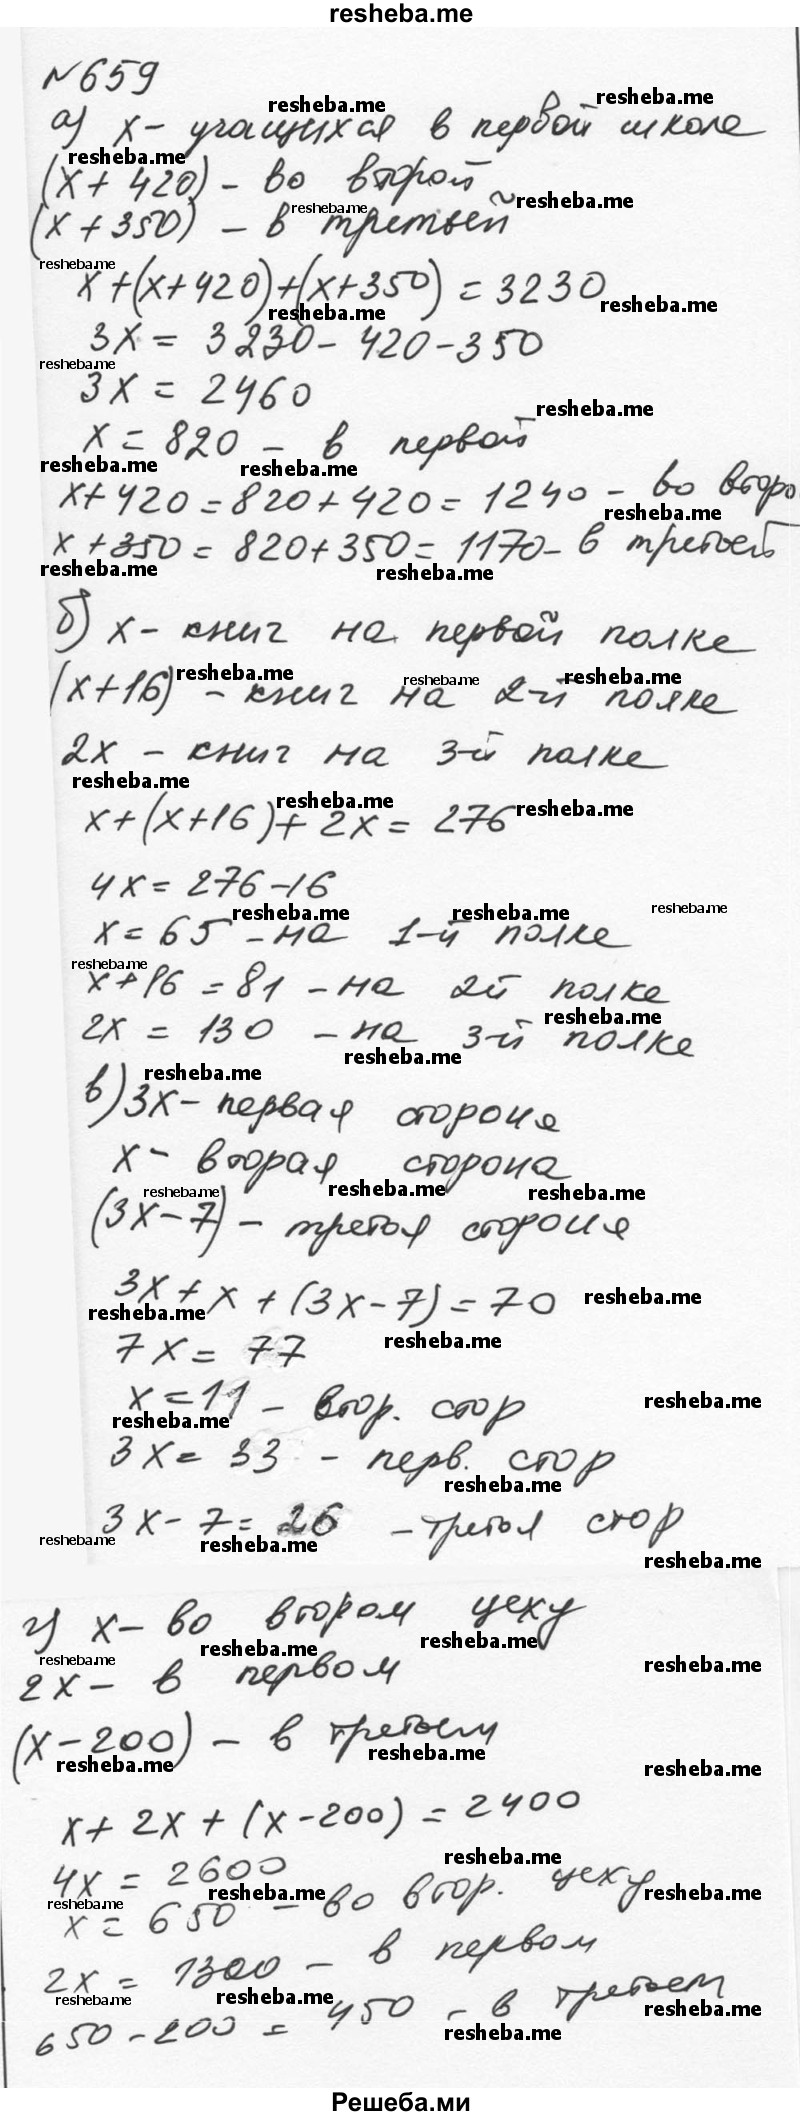 resheba.me
№659
а) x - учащихся в первой школе
(x + 420) - во второй
(x + 350) - в третьей
x+(x+420)+(x+350) = 3230
3x = 3230 - 420 - 350
3x = 2460
x = 820 - в первой
x+420 = 820+420 = 1240 - во второ
x+350 = 820+350 = 1170 - в третьей
б) x - книг на первой полке
(x+16) - книг на 2-й полке
2x - книг на 3-й полке
x+(x+16)+2x = 276
4x = 276-16
x = 65 - на 1-й полке
x+16 = 81 - на 2й полке
2x = 130 - на 3-й полке
в) 3x - первая сторона
x - вторая сторона
(3x-7) - третья сторона
3x + x + (3x-7) = 70
7x = 77
x = 11 - втор. стор
3x = 33 - перв. стор
3x - 7 = 26 - третья стор
г) x - во втором цеху
2x - в первом
(x-200) - в третьем
x + 2x + (x-200) = 2400
4x = 2600
x = 650 - во втор. цеху
2x = 1300 - в первом
650 - 200 = 450 - в третьем
Решеба.ми